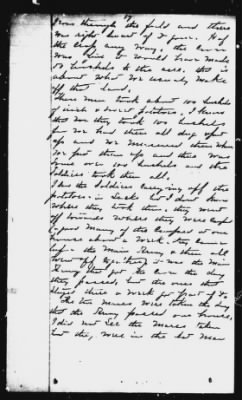 from through the field and there
was right smart of I guess. Had
the crop any way, the corn
was fine it would have made
50 bushels to the acre. this is
about what we usually make
off the land.
There men took about 100 bushels
of irish & sweet potatoes, I know
that they took 100 bushels
for we had them all dug
up and we measured them when
we put them up and there was
over 100 bushels and the
Soldiers took them all.
I saw the Soldiers carrying off the
potatoes in sacks but I don't know
where they took them, they went
off towards where they were camped
a good many of them camped at our
house about a week. they came in
before the Main Army & then all
went off together. it was the Main
Army that got the corn the day
they passed, but the ones that
there a week got
The two mules was taken the day
that the Army passed our house,
I did not see the mules taken
but they were in the lot